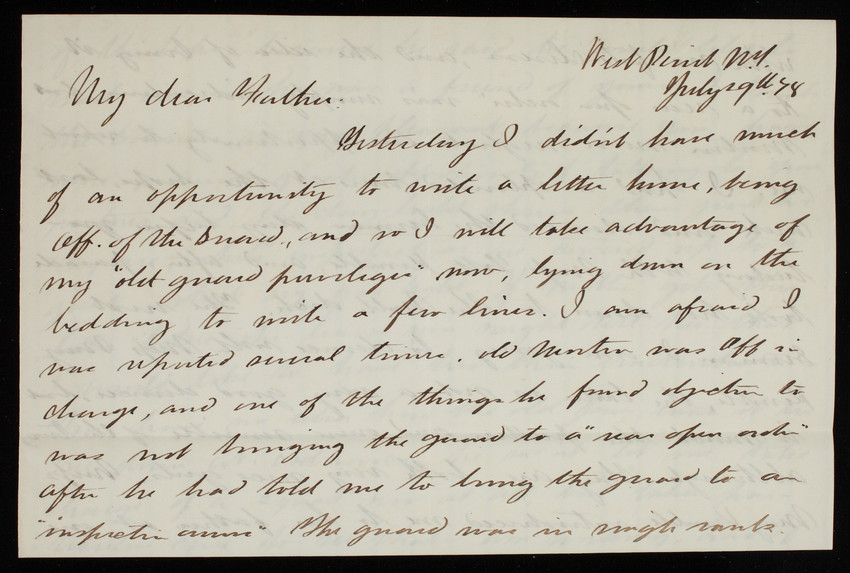 West Point N.Y.
July 29th 78
My dear Father.
Yesterday I didn't have much
of an opportunity to write a letter home, being
Off. of the Guard, and so I will take advantage of
my "old guard privileges" now, lying down on the
bedding to write a few lines. I am afraid I
was reported several times. old was Off in
charge, and one of the things he found objection to
was not bringing the guard to a "rear open order"
after he had told me to bring the guard to an
"inspection arms" The guard was in single ranks.